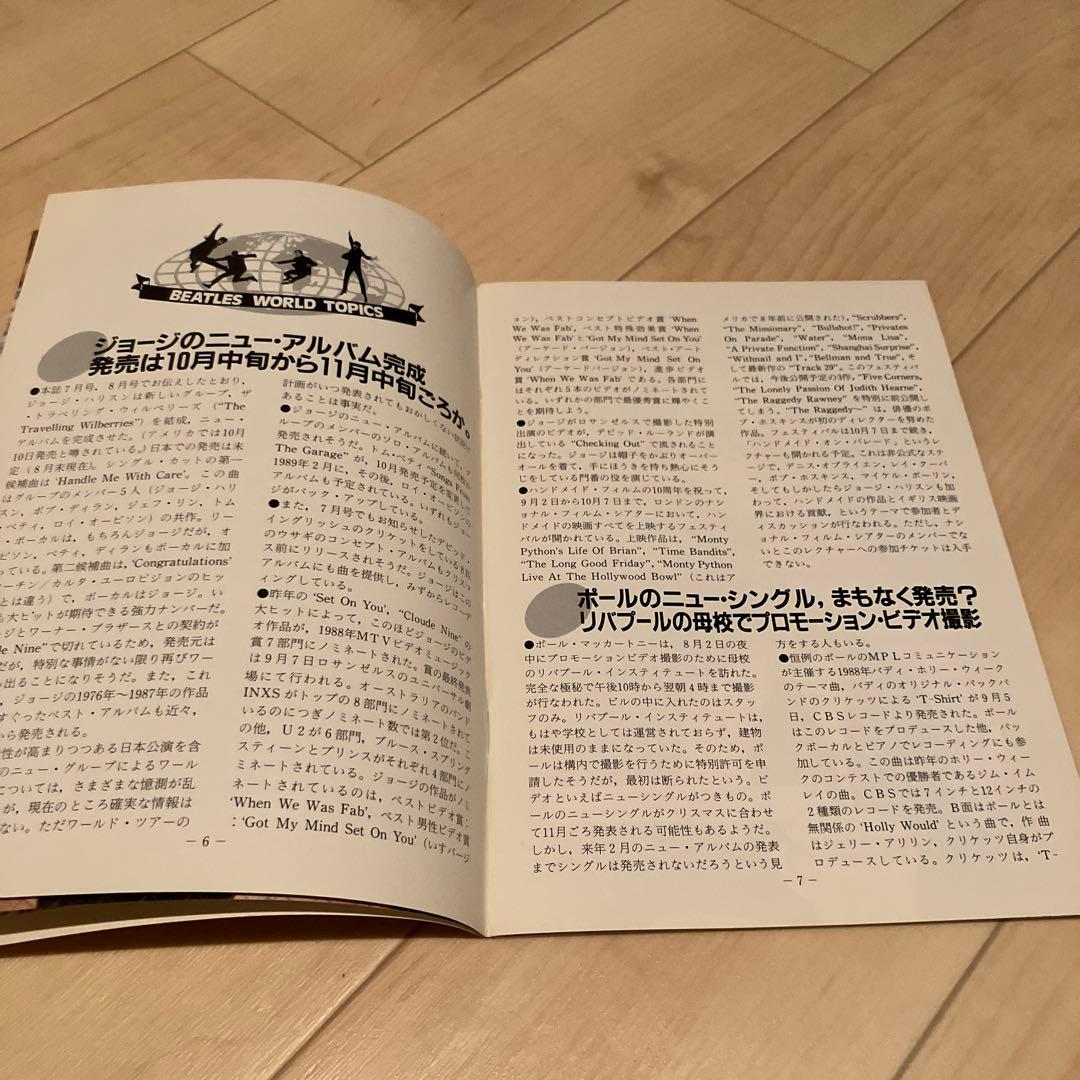 BEATLES WORLD TOPICS
ジョージのニュー・アルバム完成
発売は10月中旬から11月中旬ごろか。
●本誌7月号，8月号でお伝えしたとおり，
ジョージ・ハリスンは新しいグループ，ザ
・トラベリング・ウィルベリーズ（“The
Travelling Wilberries”）を結成，ニュー・
アルバムを完成させた。（アメリカでは10月
10日発売と噂されている。）日本での発売は未
定（8月末現在）。シングル・カットの第一
候補曲は‘Handle Me With Care’。この曲
はグループのメンバー5人（ジョージ・ハリ
スン，ボブ・ディラン，ジェフ・リン，トム・
ペティ，ロイ・オービソン）の共作。リー
・ボーカルは，もちろんジョージだが，オ
ビソン，ペティ，ディランもボーカルに加
っている。第二候補曲は，‘Congratulations’
ーチン/カルタ・ユーロビジョンのヒッ
とは違う）で，ボーカルはジョージ。い
も大ヒットが期待できる強力ナンバーだ。
ージとワーナー・ブラザースとの契約が
de Nine”で切れているため，発売元は
だが，特別な事情がない限り再びワー
ら出ることになりそうだ。また，これ
，ジョージの1976年～1987年の作品
すぐったベスト・アルバムも近々，
から発売される。
性が高まりつつある日本公演を含
のニュー・グループによるワール
については，さまざまな憶測が乱
が，現在のところ確実な情報は
ない。ただワールド・ツアーの
計画がいつ発表されてもおかしくない状況に
あることは事実だ。
●ジョージのニュー・アルバムに続いて，グ
ループのメンバーのソロ・アルバムも何枚か
発売されそうだ。トム・ペティ“Songs From
The Garage”が，10月発売予定を変更して
1989年2月に，その後，ロイ・オービソンの
アルバムも予定されている。いずれもジョー
ジがバック・アップしている。
●また，7月号でもお知らせしたデビッド・
イングリッシュのクリケットをしている8匹
のウサギのコンセプト・アルバムもクリスマ
ス前にリリースされそうだ。ジョージはこの
アルバムにも曲を提供し，みずからレコーデ
ィングしている。
●昨年の‘Set On You’，“Cloude Nine”の
大ヒットによって，このほどジョージのビデ
オ作品が，1988年MTVビデオミュージック
賞7部門にノミネートされた。賞の最終発表
は9月7日ロサンゼルスのユニバーサル劇
場にて行われる。オーストラリアのバンド
INXSがトップの8部門にノミネートされて
いるのにつぎノミネート数では第2位だ。こ
の他，U2が6部門，ブルース・スプリング
スティーンとプリンスがそれぞれ4部門にノ
ミネートされている。ジョージの作品がノミ
ネートされているのは，ベストビデオ賞；
‘When We Was Fab’，ベスト男性ビデオ賞
；‘Got My Mind Set On You’（いすバージ
－6－
ョン），ベストコンセプトビデオ賞‘When
We Was Fab’，ベスト特殊効果賞‘When
We Was Fab’と‘Got My Mind Set On You’
（アーケード・バージョン），ベスト・アート
ディレクション賞‘Got My Mind Set On
You’（アーケードバージョン），進歩ビデオ
賞‘When We Was Fab’である。各部門に
はそれぞれ5本のビデオがノミネートされて
いる。いずれかの部門で最優秀賞に輝やくこ
とを期待しよう。
●ジョージがロサンゼルスで撮影した特別
出演のビデオが，デビッド・ルーランドが演
出している“Checking Out”で流されること
になった。ジョージは帽子をかぶりオーバー
オールを着て，手にほうきを持ち熱心にそう
じをしている門番の役を演じている。
●ハンドメイド・フィルムの10周年を祝って，
9月2日から10月7日まで，ロンドンのナシ
ョナル・フィルム・シアターにおいて，ハン
ドメイドの映画すべてを上映するフェスティ
バルが開かれている。上映作品は，“Monty
Python's Life Of Brian”，“Time Bandits”，
“The Long Good Friday”，“Monty Python
Live At The Hollywood Bowl”（これはア
メリカで8年前に公開された），“Scrubbers”，
“The Missionary”，“Bullshot!”，“Privates
On Parade”，“Water”，“Mona Lisa”，
“A Private Function”，“Shanghai Surprise”，
“Withnail and I”，“Bellman and True”，そ
して最新作の“Track 29”。このフェスティバ
ルでは，今後公開予定の3作，“Five Corners，
“The Lonely Passion Of Judith Hearne”，
“The Raggedy Rawney”を特別に前公開し
てしまう。“The Raggedy～”は，俳優のボ
ブ・ホスキンスが初のディレクターを努めた
作品。フェスティバルは10月7日まで続き，
「ハンドメイド・オン・パレード」というレ
クチャーも開かれる予定。これは非公式なステ
ージで，デニス・オブライエン，レイ・クーパ
ー，ボブ・ホスキンス，マイケル・ポーリン，
そしてもしかしたらジョージ・ハリスンも加
わって，ハンドメイドの作品とイギリス映画
界における貢献，というテーマで参加者とデ
ィスカッションが行なわれる。ただし，ナシ
ョナル・フィルム・シアターのメンバーでな
いとこのレクチャーへの参加チケットは入手
できない。
ポールのニュー・シングル，まもなく発売？
リバプールの母校でプロモーション・ビデオ撮影
●ポール・マッカートニーは，8月2日の夜
中にプロモーションビデオ撮影のために母校
のリバプール・インスティテュートを訪れた。
完全な極秘で午後10時から翌朝4時まで撮影
が行なわれた。ビルの中に入れたのはスタッ
フのみ。リバプール・インスティテュートは，
もはや学校としては運営されておらず，建物
は未使用のままになっていた。そのため，ポ
ールは構内で撮影を行うために特別許可を申
請したそうだが，最初は断られたという。ビ
デオといえばニューシングルがつきもの。ポ
ールのニューシングルがクリスマスに合わせ
て11月ごろ発表される可能性もあるようだ。
しかし，来年2月のニュー・アルバムの発表
までシングルは発売されないだろうという見
方をする人もいる。
●恒例のポールのMPLコミュニケーション
が主催する1988年バディ・ホリー・ウィーク
のテーマ曲，バディのオリジナル・バックバ
ンドのクリケッツによる‘T-Shirt’が9月5
日，CBSレコードより発売された。ポール
はこのレコードをプロデュースした他，バッ
クボーカルとピアノでレコーディングにも参
加している。この曲は昨年のホリー・ウィー
クのコンテストでの優勝者であるジム・イム
レイの曲。CBSでは7インチと12インチの
2種類のレコードを発売。B面はポールとは
無関係の‘Holly Would’という曲で，作曲
はジェリー・アリリン，クリケッツ自身がプ
ロデュースしている。クリケッツは，‘T-
－7－